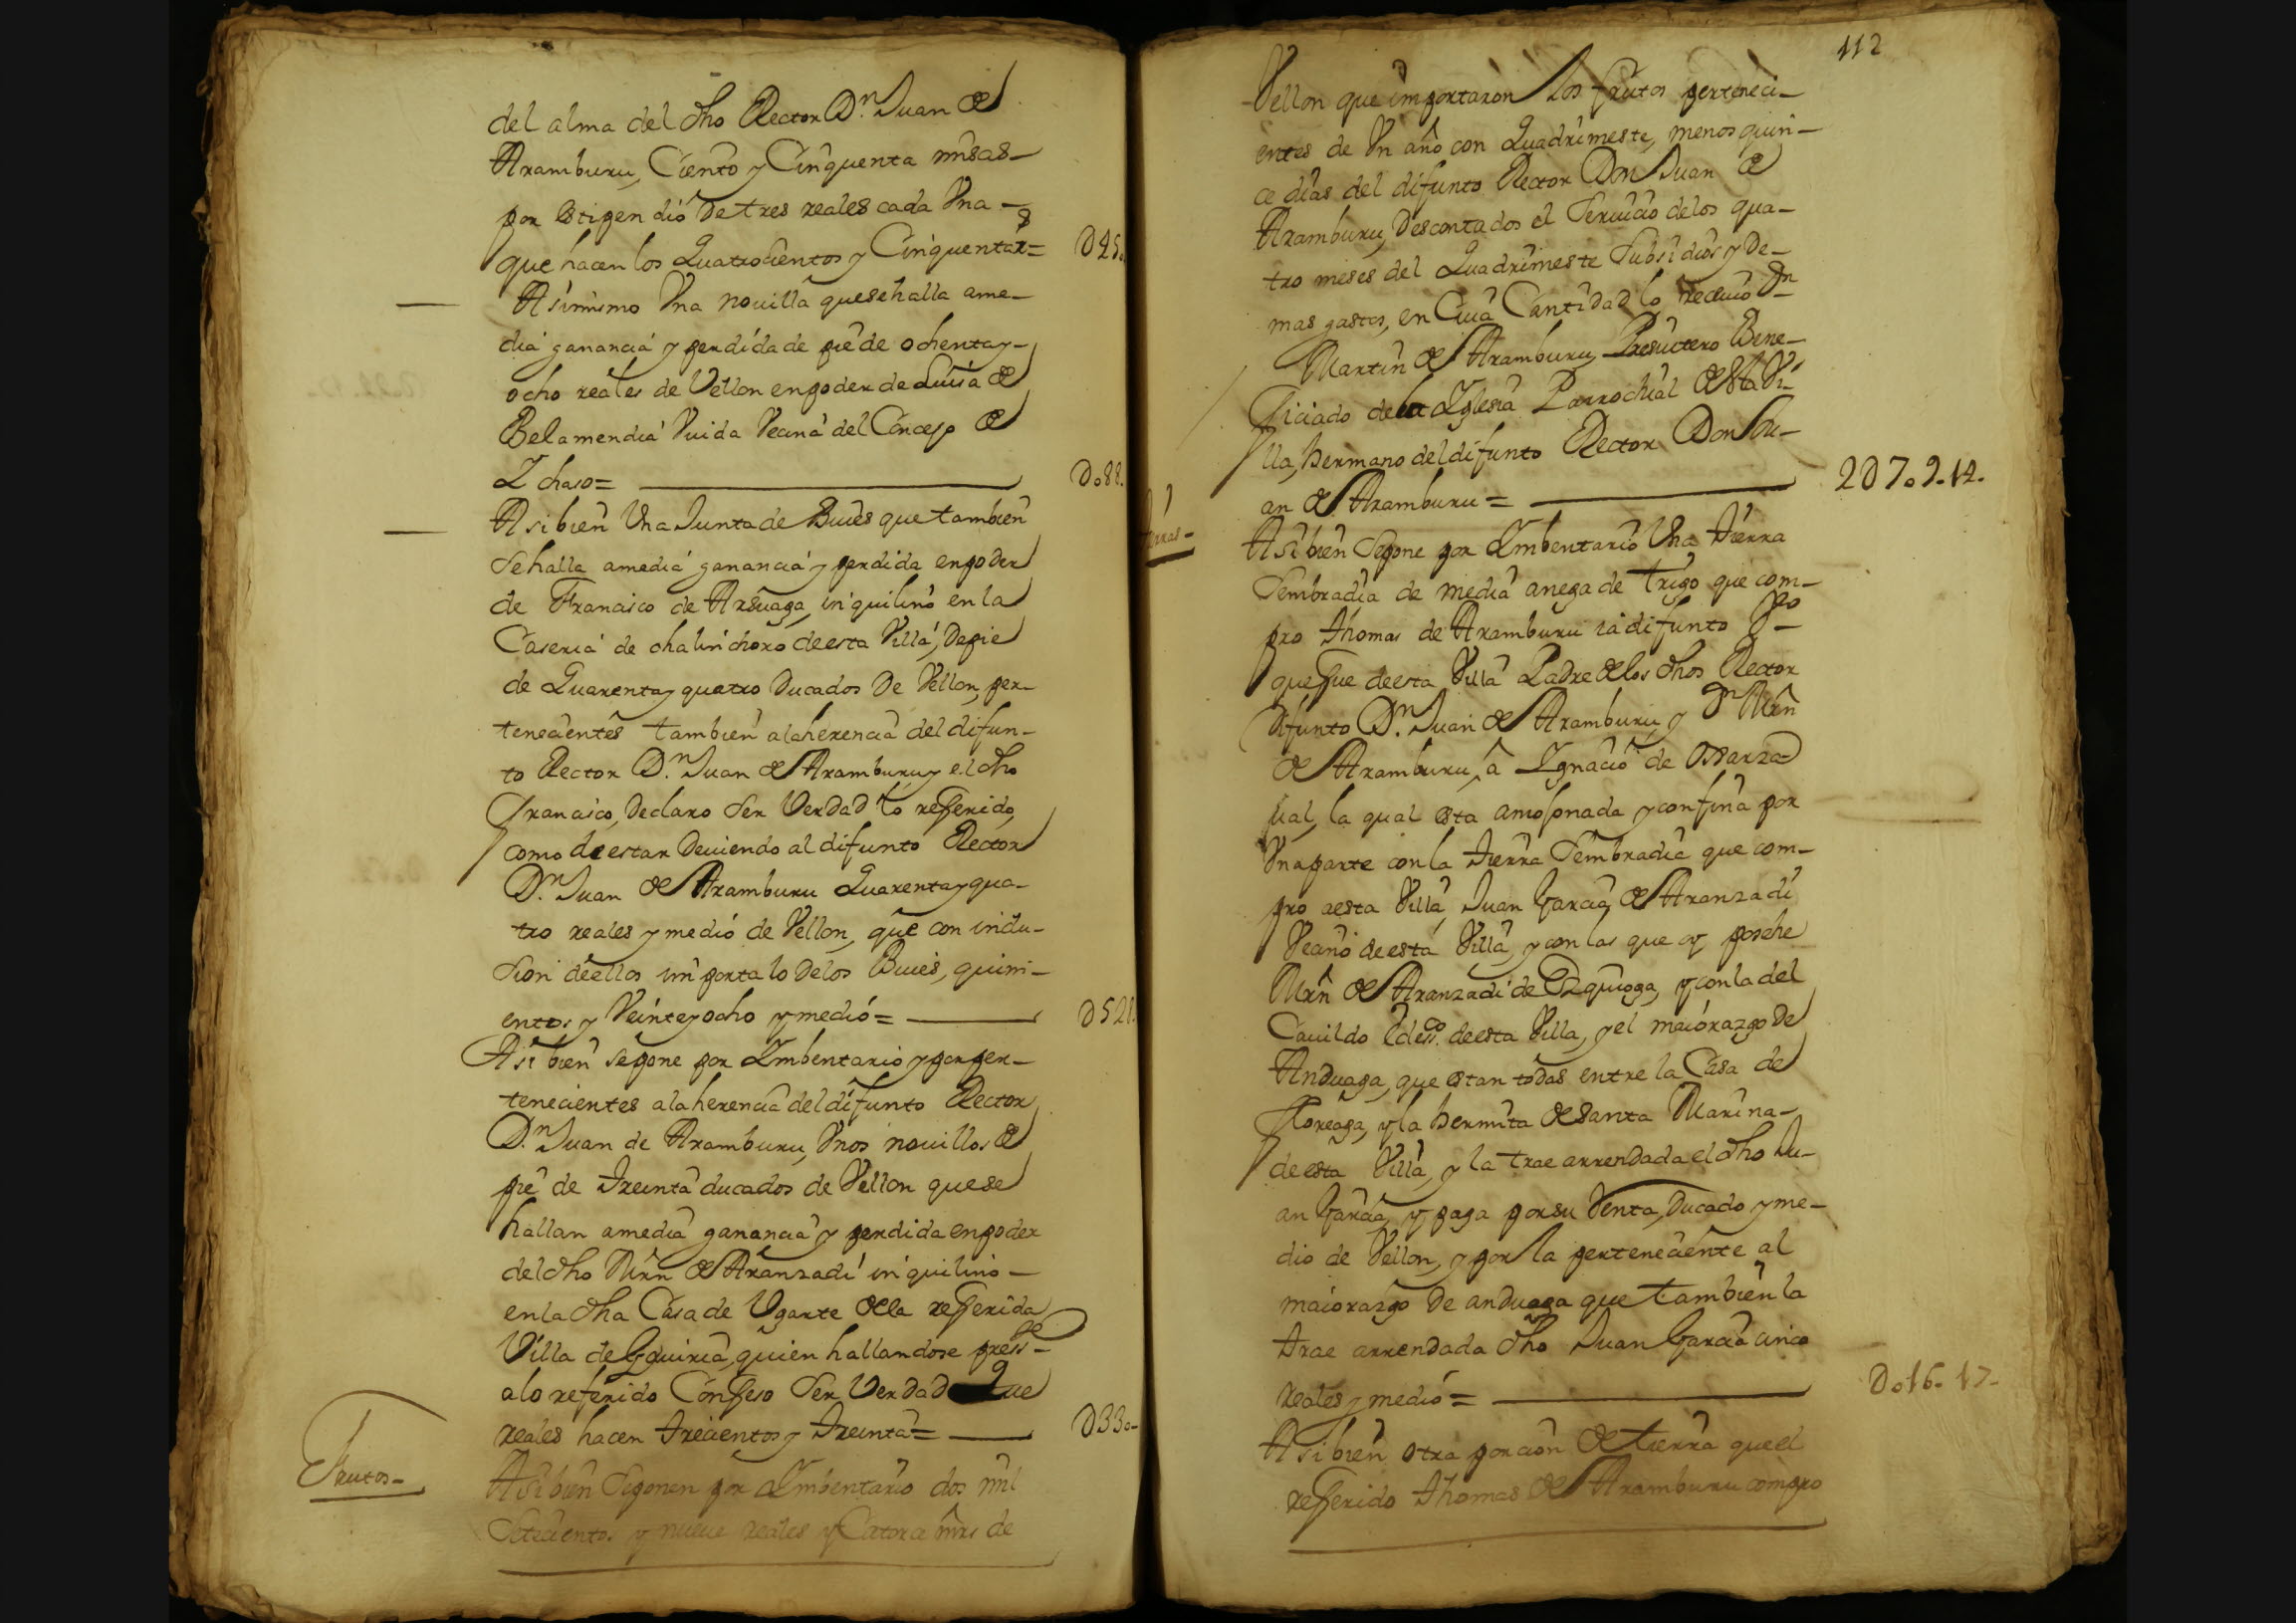 del alma del dho Rector Dn. Juan de
Aramburu, Ciento y Cinquenta misas
por estipendio de tres reales cada Vna
que hacen los Quatrocientos y Cinquenta rs= D45
Asimismo Vna nouilla que se halla ame-
dia ganancia y perdida de pie de ochenta y
ocho reales de Vellon en poder de Luisa de
Belamendia Viuda Vecina del Concejo de
Ichaso= D088.
Asi bien Vna Junta de Bueis que tambien
se halla amedia ganancia y perdida en poder
de Francisco de Arsuaga, inquilino en la
Caseria de chalinchoro de esta Villa, de pie
de Quarenta y quatro Ducados de Vellon, per-
tenecientes tambien ala herencia del difun-
to Rector Dn. Juan de Aramburu y el dho
Francisco, declaro ser Verdad lo referido,
como de estar deuiendo al difunto Rector
Dn. Juan de Aramburu Quarenta y qua-
tro reales y medio de Vellon, que con inclu-
sion de ellos importa lo de los Bueis, quini-
entos y Veinte y ocho y medio= D528.
Asi bien se pone por Imbentario y por per-
tenecientes ala herencia del difunto Rector
Dn. Juan de Aramburu, Vnos nouillos de
pie de Treinta ducados de Vellon que se
hallan amedia ganancia y perdida en poder
del dho Mrn de Aranzadi inquilino
en la dha Casa de Vgarte de la referida
Villa de Ezquioga, quien hallandose presste
alo referido Confeso ser Verdad Que
reales hacen Trecientos y Treinta= D330-
Frutos-
Asi bien se ponen por Imbentario dos mil
Setecientos y nueue reales y Catorce mrs de
112
Vellon que importaron los frutos perteneci-
entes de Vn año con Quadrimeste, menos quin-
ce dias del difunto Rector Don Juan de
Aramburu, Descontados el Seruicio delos qua-
tro meses del Quadrimeste Subsidios y De-
mas gastos, en Cuia Cantidad lo reciuio Dn
Martin de Aramburu Presuitero Bene-
ficiado de la Iglesia Parrochial de esta Vi-
lla, hermano del difunto Rector Don Ju-
an de Aramburu= 2D709.14.
Tierras-
Asi bien se pone por Imbentario Vna Tierra
Sembradia de media anega de Trigo que com-
pro Thomas de Aramburu ia difunto
que fue de esta Villa Padre de los dhos Rector
difunto Dn. Juan de Aramburu, y Dn Mrn
de Aramburu, a Ignacio de Osarza
jual, la qual esta amojonada y confina por
Vna parte con la Tierra Sembradia que com-
pro aesta Villa Juan Garcia de Aranzadi
Vecino de esta Villa, y con las que oy posehe
Mrn de Aranzadi de Ezquioga, y con la del
Cauildo Ecclesco. de esta Villa, y el maiorazgo de
Anduaga, que estan todas entre la Casa de
Floreaga, y la hermita de Santa Marina
de esta Villa, y la trae arrendada el dho Ju-
an Garcia, y paga por su Renta, Ducado y me-
dio de Vellon, y por la perteneciente al
maiorazgo de anduaga que tambien la
trae arrendada dho Juan Garcia cinco
reales y medio= D016.17-
Asi bien otra porcion de tierra que el
referido Thomas de Aramburu compro